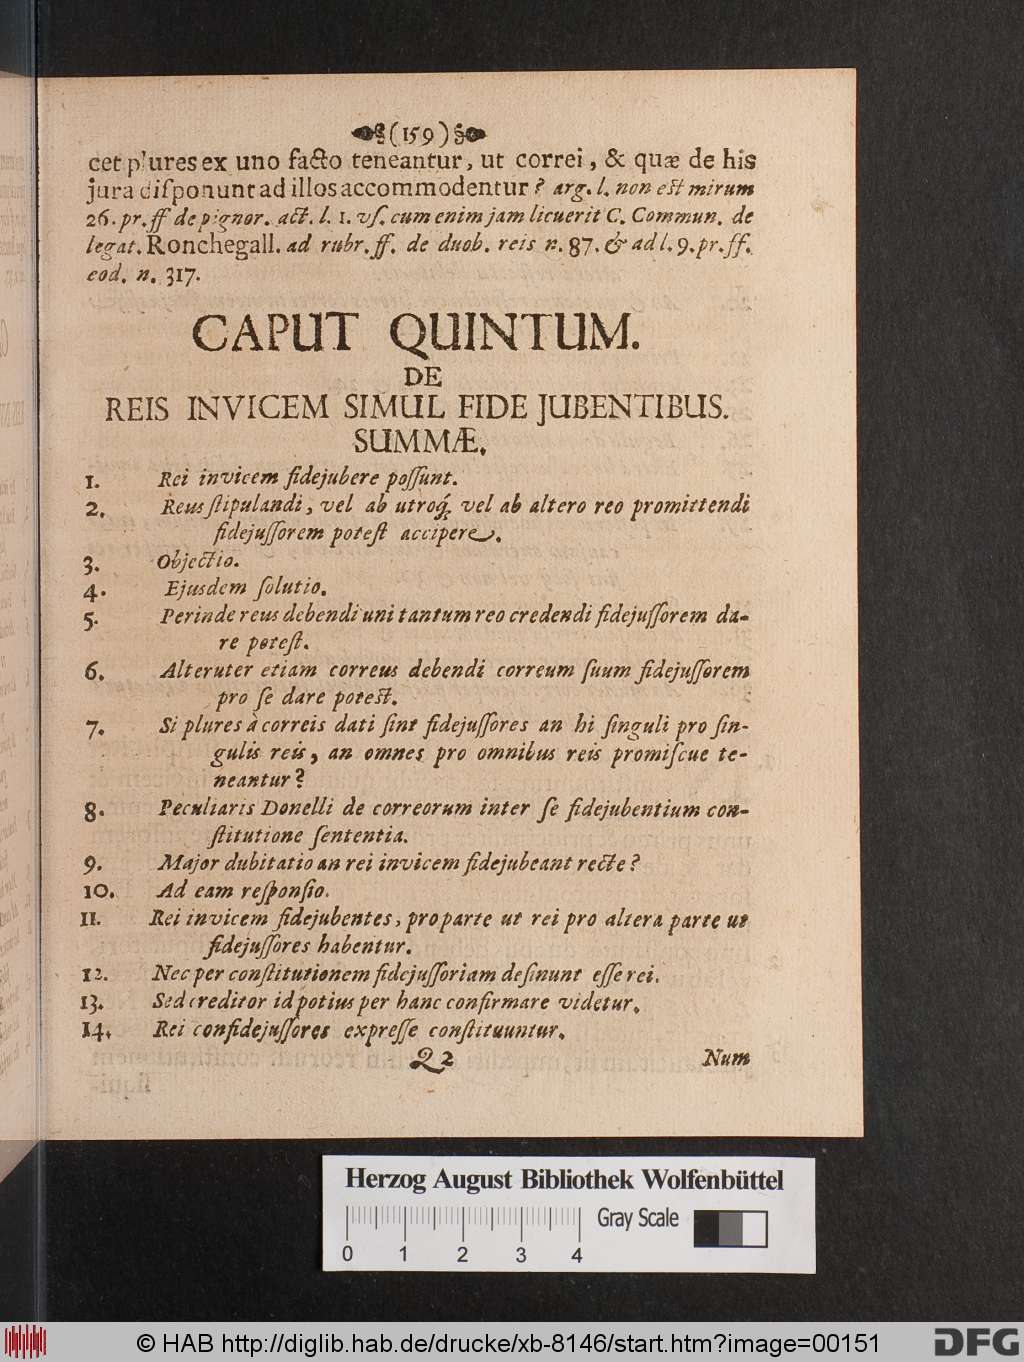 (159)
cet plures ex uno facto teneantur, ut correi, & quæ de his
jura disponunt ad illos accommodentur? arg. l. non est mirum
26. pr. ff de pignor. act. l. 1. vs. cum enim jam licuerit C. Commun. de
legat. Ronchegall. ad rubr. ff. de duob. reis n. 87. & ad l. 9. pr. ff.
eod. n. 317.
CAPUT QUINTUM.
DE
REIS INVICEM SIMUL FIDEJUBENTIBUS.
SUMMÆ.
1. Rei invicem fidejubere possunt.
2. Reus stipulandi, vel ab utroq́; vel ab altero reo promittendi
fidejussorem potest accipere.
3. Objectio.
4. Ejusdem solutio.
5. Perinde reus debendi uni tantum reo credendi fidejussorem da-
re potest.
6. Alteruter etiam correus debendi correum suum fidejussorem
pro se dare potest.
7. Si plures à correis dati sint fidejussores an hi singuli pro sin-
gulis reis, an omnes pro omnibus reis promiscue te-
neantur?
8. Peculiaris Donelli de correorum inter se fidejubentium con-
stitutione sententia.
9. Major dubitatio an rei invicem fidejubeant recte?
10. Ad eam responsio.
11. Rei invicem fidejubentes, pro parte ut rei pro altera parte ut
fidejussores habentur.
12. Nec per constitutionem fidejussoriam desinunt esse rei.
13. Sed creditor id potius per hanc confirmare videtur.
14. Rei confidejussores expresse constituuntur.
Q2 Num
Herzog August Bibliothek Wolfenbüttel
Gray Scale
0 1 2 3 4
© HAB http://diglib.hab.de/drucke/xb-8146/start.htm?image=00151
DFG